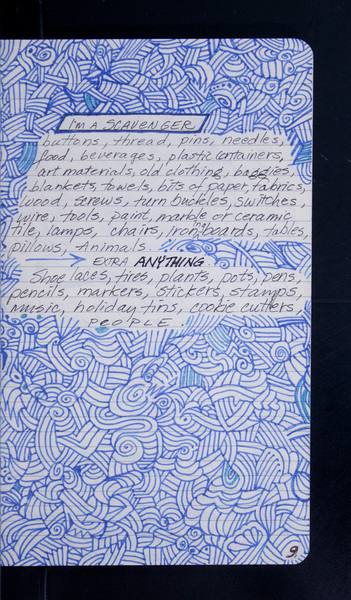 I'M A SCAVENGER
buttons, thread, pins, needles,
food, beverages, plastic containers,
art materials, old clothing, baggies,
blankets, towels, bits of paper, fabrics,
wood, screws, turn buckles, switches,
wire, tools, paint, marble or ceramic
tile, lamps, chairs, ironing boards, tables,
pillows, animals.
EXTRA ANYTHING
Shoe laces, tires, plants, pots, pens,
pencils, markers, stickers, stamps,
music, holiday tins, cookie cutters,
PEOPLE.
9